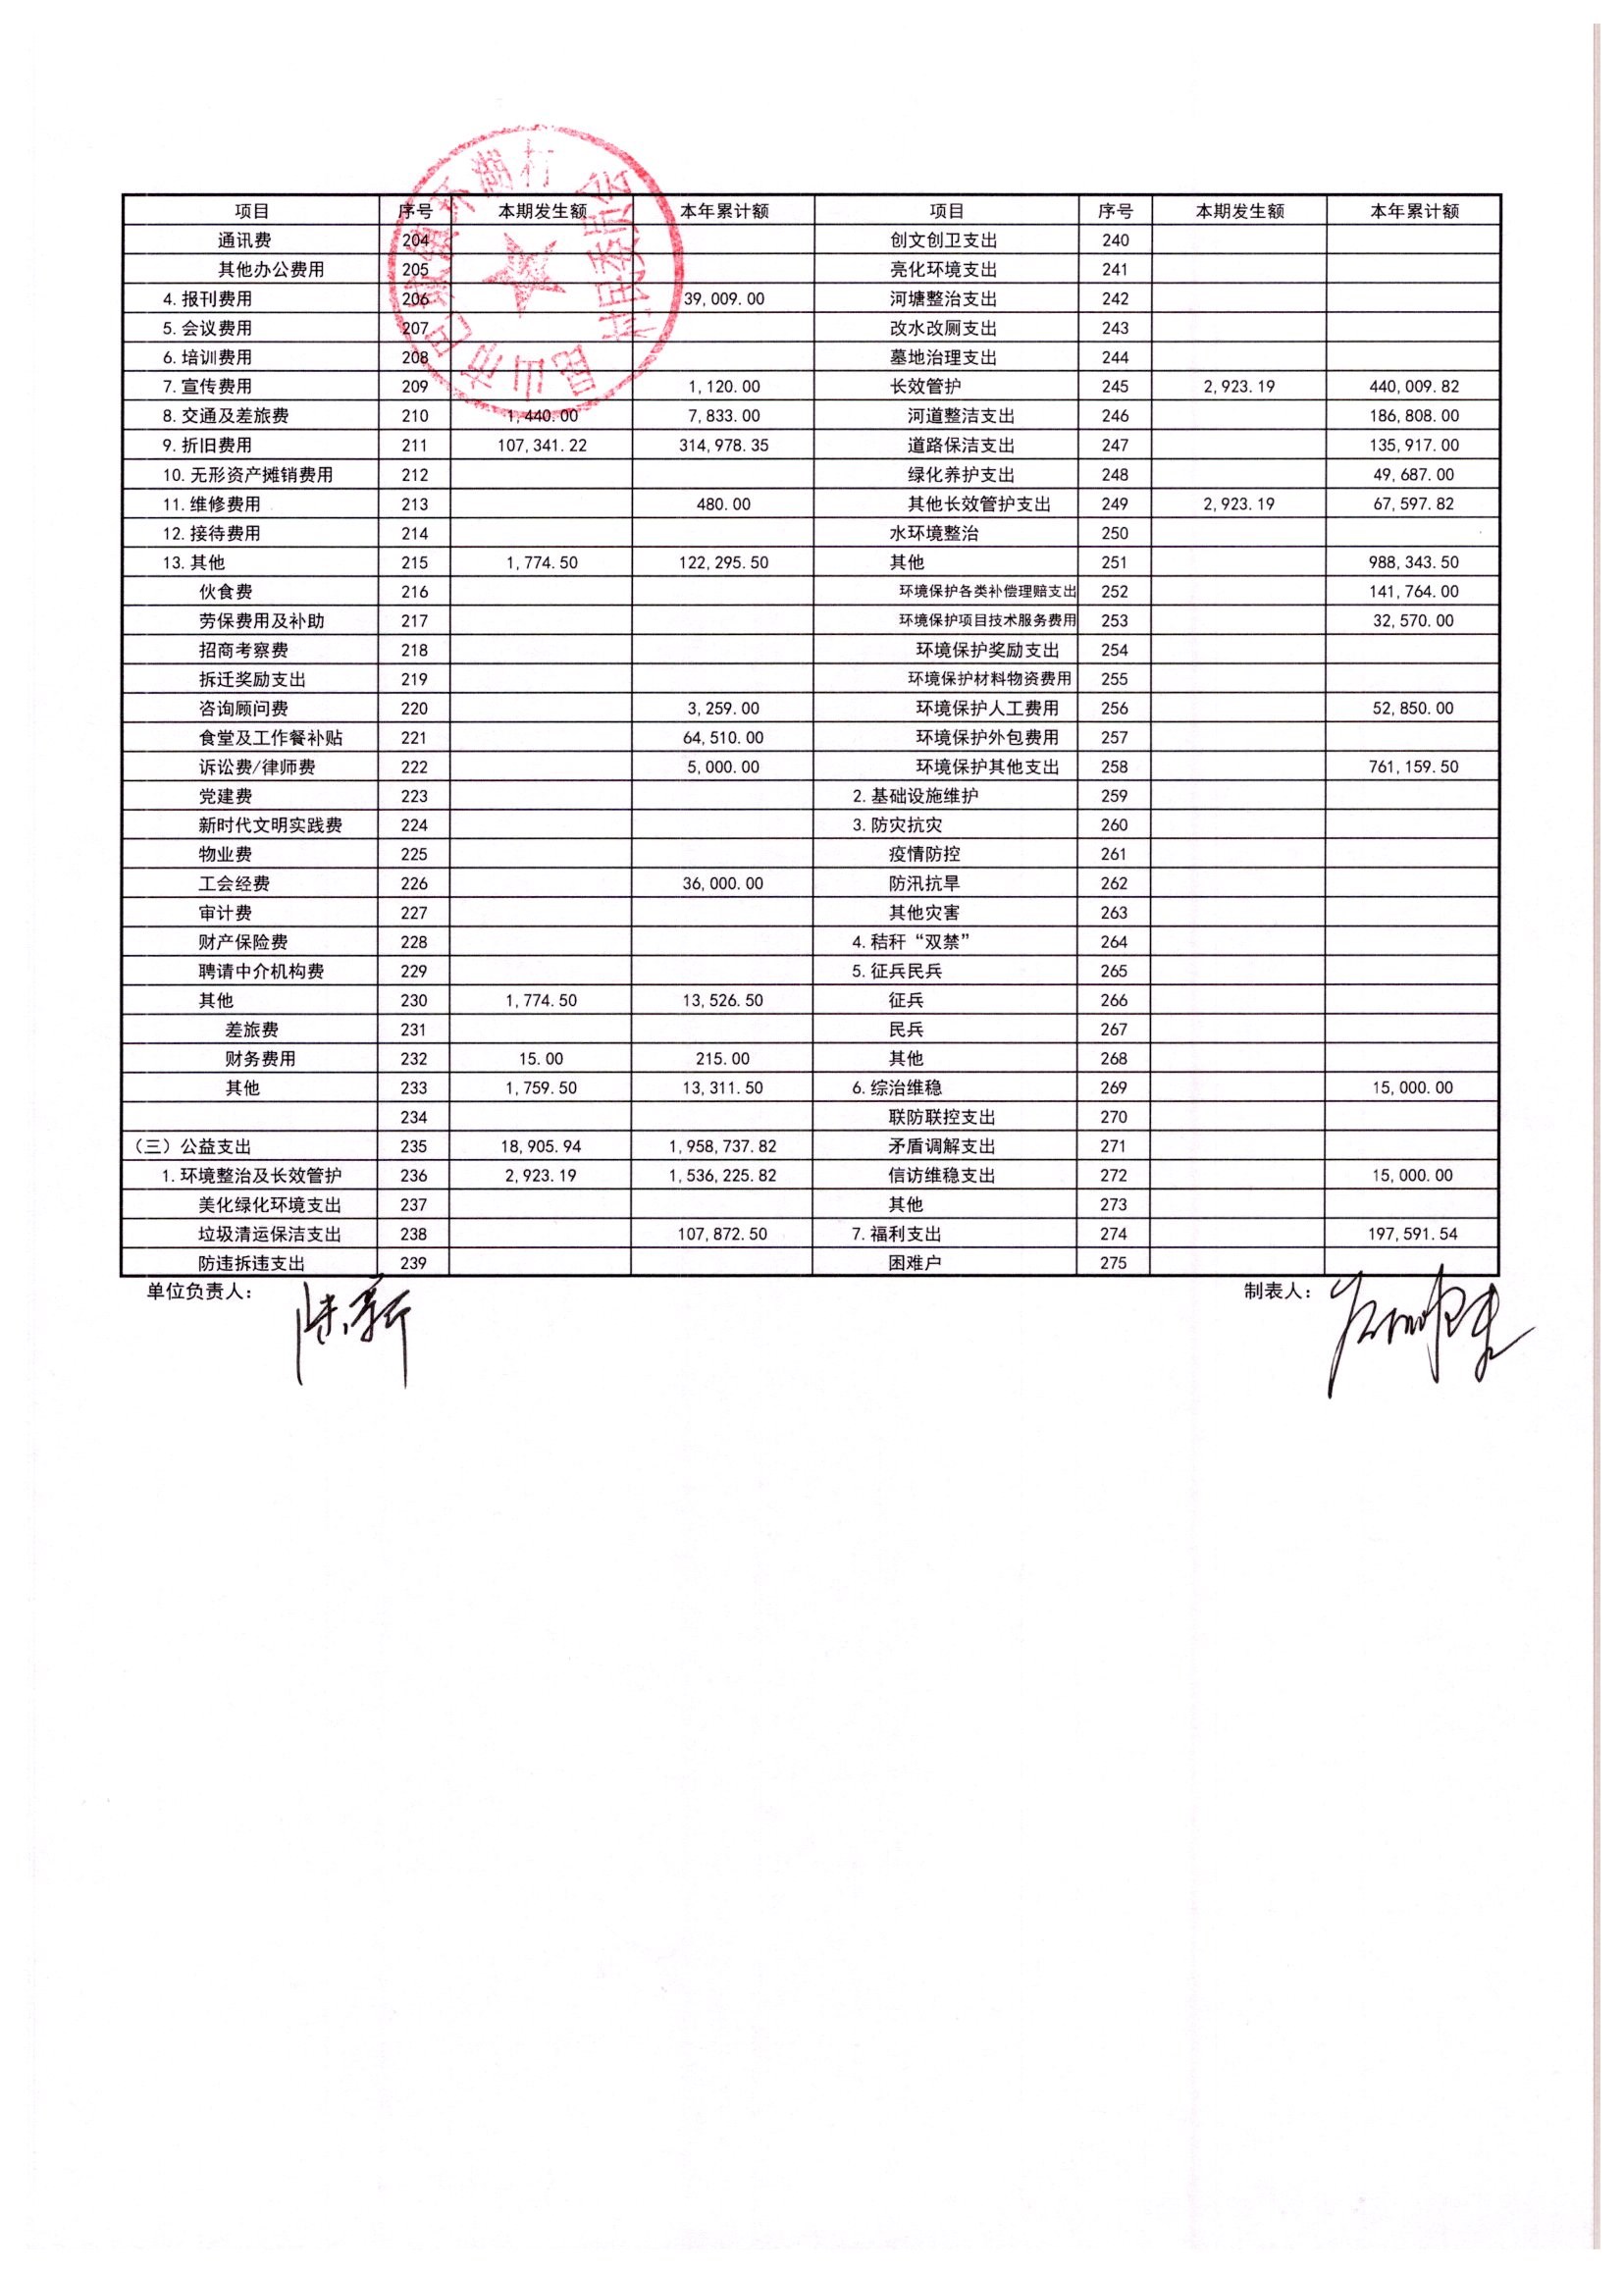 昆山市巴城镇环湖村村民委员会
项目 序号 本期发生额 本年累计额 项目 序号 本期发生额 本年累计额
通讯费 204 创文创卫支出 240
其他办公费用 205 亮化环境支出 241
4.报刊费用 206 39,009.00 河塘整治支出 242
5.会议费用 207 改水改厕支出 243
6.培训费用 208 墓地治理支出 244
7.宣传费用 209 1,120.00 长效管护 245 2,923.19 440,009.82
8.交通及差旅费 210 1,440.00 7,833.00 河道整洁支出 246 186,808.00
9.折旧费用 211 107,341.22 314,978.35 道路保洁支出 247 135,917.00
10.无形资产摊销费用 212 绿化养护支出 248 49,687.00
11.维修费用 213 480.00 其他长效管护支出 249 2,923.19 67,597.82
12.接待费用 214 水环境整治 250
13.其他 215 1,774.50 122,295.50 其他 251 988,343.50
伙食费 216 环境保护各类补偿理赔支出 252 141,764.00
劳保费用及补助 217 环境保护项目技术服务费用 253 32,570.00
招商考察费 218 环境保护奖励支出 254
拆迁奖励支出 219 环境保护材料物资费用 255
咨询顾问费 220 3,259.00 环境保护人工费用 256 52,850.00
食堂及工作餐补贴 221 64,510.00 环境保护外包费用 257
诉讼费/律师费 222 5,000.00 环境保护其他支出 258 761,159.50
党建费 223 2.基础设施维护 259
新时代文明实践费 224 3.防灾抗灾 260
物业费 225 疫情防控 261
工会经费 226 36,000.00 防汛抗旱 262
审计费 227 其他灾害 263
财产保险费 228 4.秸秆“双禁” 264
聘请中介机构费 229 5.征兵民兵 265
其他 230 1,774.50 13,526.50 征兵 266
差旅费 231 民兵 267
财务费用 232 15.00 215.00 其他 268
其他 233 1,759.50 13,311.50 6.综治维稳 269 15,000.00
234 联防联控支出 270
（三）公益支出 235 18,905.94 1,958,737.82 矛盾调解支出 271
1.环境整治及长效管护 236 2,923.19 1,536,225.82 信访维稳支出 272 15,000.00
美化绿化环境支出 237 其他 273
垃圾清运保洁支出 238 107,872.50 7.福利支出 274 197,591.54
防违拆违支出 239 困难户 275
单位负责人： 制表人：